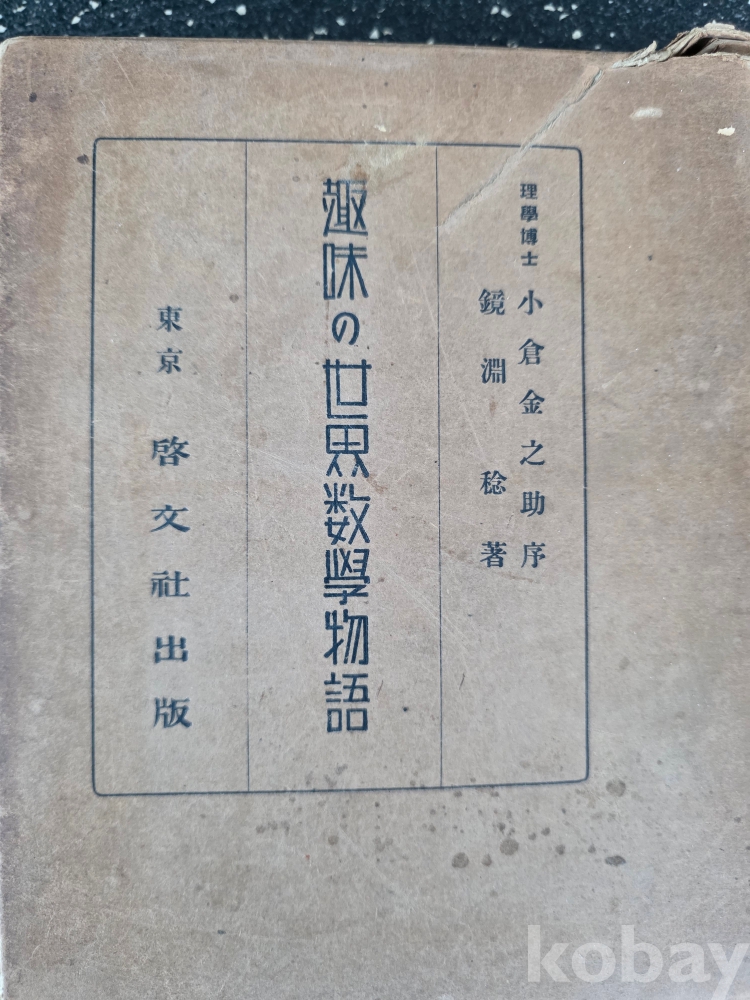 理學博士 小倉金之助序
鏡淵 稔著
趣味の世界数學物語
東京 啓文社出版
kobay